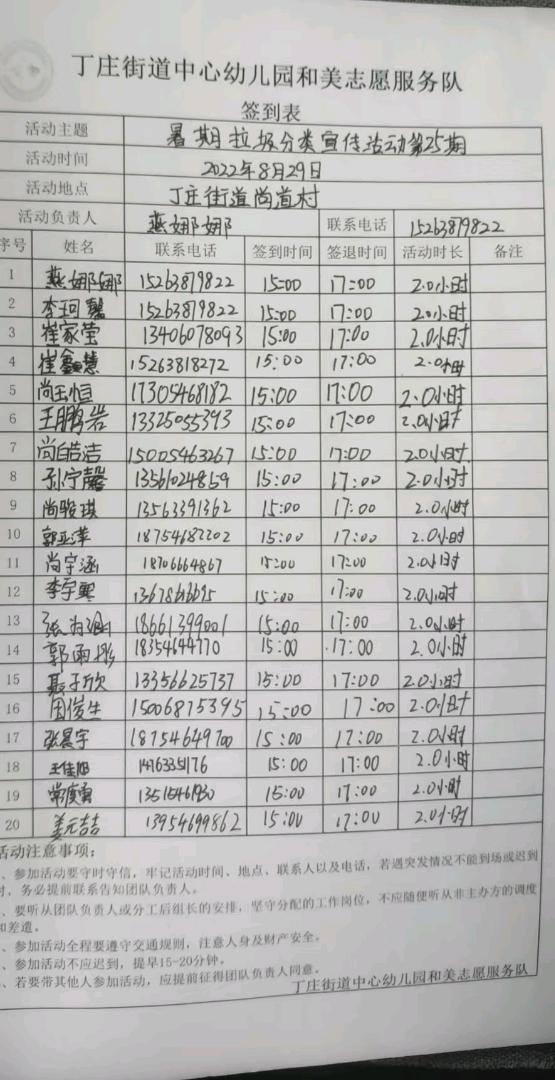 丁庄街道中心幼儿园和美志愿服务队
签到表
活动主题 暑期垃圾分类宣传活动第25期
活动时间 2022年8月29日
活动地点 丁庄街道尚道村
活动负责人 燕娜娜 联系电话 15263879822
序号 姓名 联系电话 签到时间 签退时间 活动时长 备注
1 燕娜娜 15263879822 15:00 17:00 2.0小时
2 李珂馨 15263879822 15:00 17:00 2.0小时
3 崔家莹 13406078093 15:00 17:00 2.0小时
4 崔鑫慧 15263818272 15:00 17:00 2.0小时
5 尚玉恒 17305468182 15:00 17:00 2.0小时
6 王鹏岩 13325055393 15:00 17:00 2.0小时
7 尚皓洁 15005463267 15:00 17:00 2.0小时
8 孙宁馨 13561024859 15:00 17:00 2.0小时
9 尚骏琪 13563391362 15:00 17:00 2.0小时
10 郭亚萍 18754682202 15:00 17:00 2.0小时
11 尚宇涵 18706664867 15:00 17:00 2.0小时
12 李宇 15:00 17:00 2.0小时
13 张 18661399001 15:00 17:00 2.0小时
14 郭雨彤 18354644770 15:00 17:00 2.0小时
15 聂子欣 13356625737 15:00 17:00 2.0小时
16 周俊生 15006875395 15:00 17:00 2.0小时
17 张晨宇 18754649700 15:00 17:00 2.0小时
18 王佳旭 15:00 17:00 2.0小时
19 15:00 17:00 2.0小时
20 姜元喆 13954699862 15:00 17:00 2.0小时
活动注意事项：
、参加活动要守时守信，牢记活动时间、地点、联系人以及电话，若遇突发情况不能到场或迟到
时，务必提前联系告知团队负责人。
、要听从团队负责人或分工后组长的安排，坚守分配的工作岗位，不应随便听从非主办方的调度
和差遣。
、参加活动全程要遵守交通规则，注意人身及财产安全。
、参加活动不应迟到，提早15-20分钟。
、若要带其他人参加活动，应提前征得团队负责人同意。
丁庄街道中心幼儿园和美志愿服务队